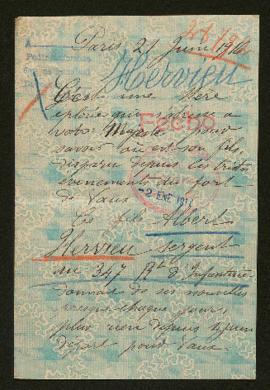 Paris, 21 Juin 1916
Hervieu
C'est une Mère
éplorée qui s'adresse à
votre Majesté pour
savoir où est son fils
disparu depuis les tristes
évènements du fort
de Vaux
FECHO
2 ENE 1917
Ce fils Albert
Hervieu sergent
au 347 Rt d'Infanterie
donnait de ses nouvelles
chaque jour,
plus rien depuis
départ pour Vaux.